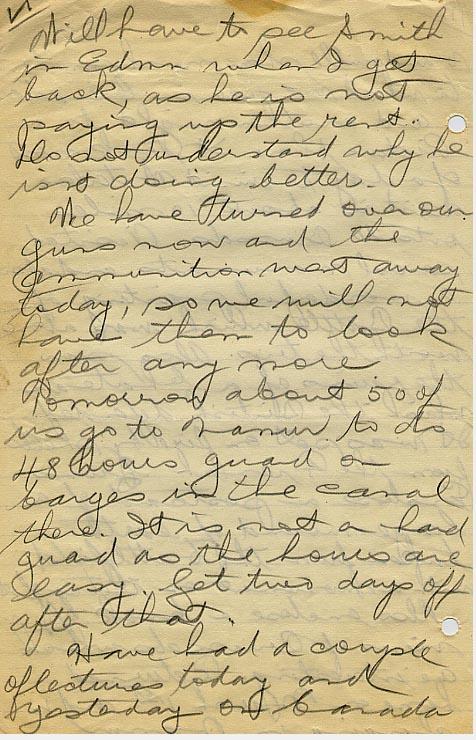 Will have to see Smith
in Edmn when I get
back, as he is not
paying up the rent.
Do not understand why he
isnt doing better.
We have turned over our
guns now and the
ammunition went away
today, so we will not
have them to look
after any more.
Tomorrow about 50 of
us go to Namur to do
48 hours guard on
barges in the canal
there. It is not a hard
guard as the hours are
easy. Get two days off
after that.
Have had a couple
of lectures today and
yesterday on Canada